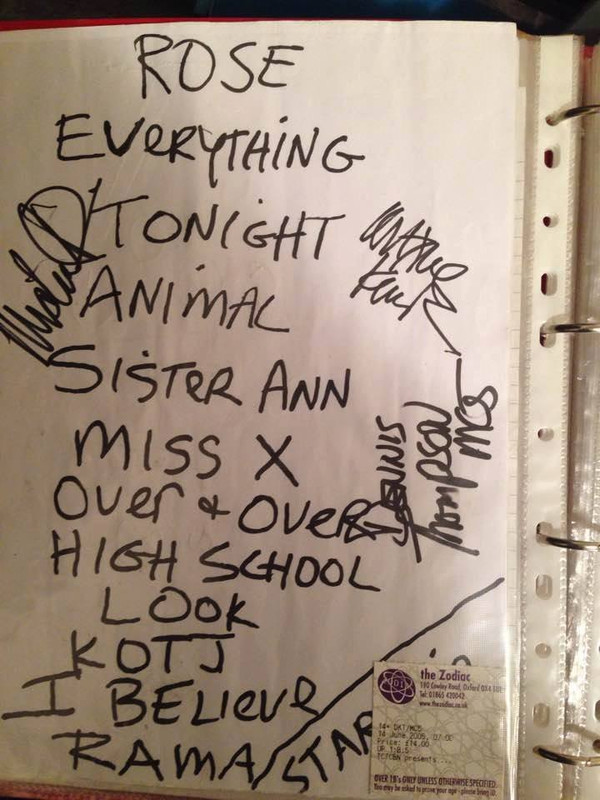 ROSE
EVERYTHING
TONIGHT
ANIMAL
SISTER ANN
MISS X
OVER & OVER
HIGH SCHOOL
LOOK
KOTJ
I BELIEVE
RAMA/STAR
DENNIS
THOMPSON
MC5
the Zodiac
190 Cowley Road, Oxford OX4 1UE
Tel: 01865 420042
www.thezodiac.co.uk
14+ DKT/MC5
14 June 2005, 07:00
Price: £14.00
TCTCBN presents...
OVER 18's ONLY UNLESS OTHERWISE SPECIFIED
You may be asked to prove your age - please bring ID